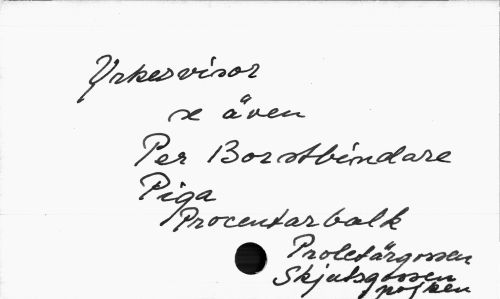 Yrkesvisor
se även
Per Borstbindare
Piga
Procentarbalk
Proletärgossen
Skjutsgossen
pojken